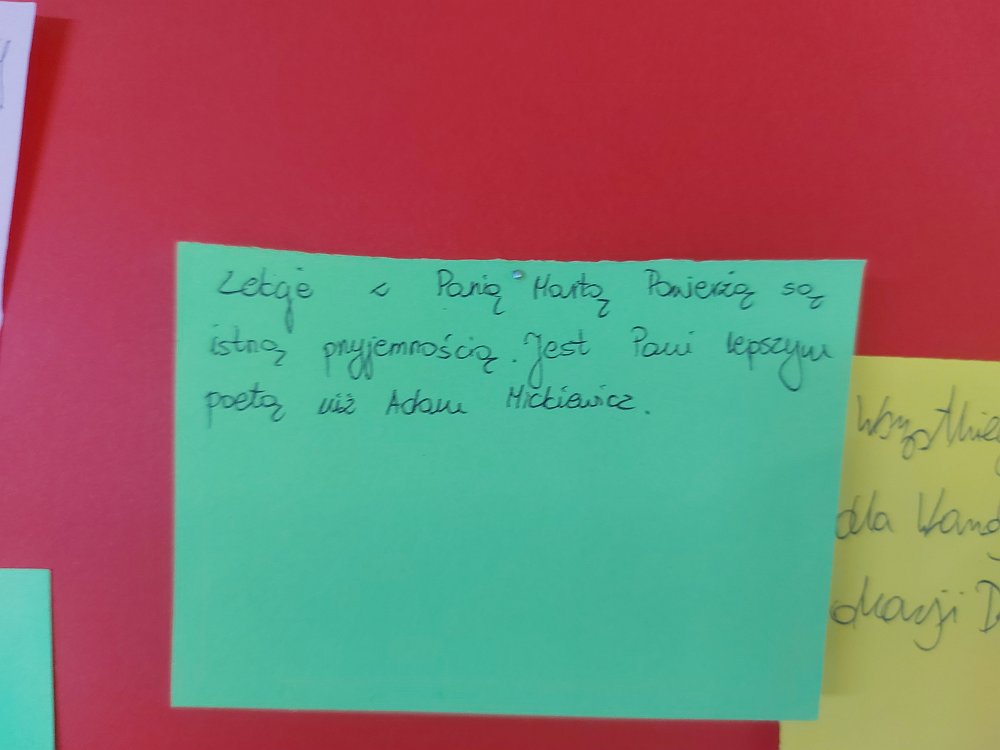 Lekcje z Panią Martą Powierżą są
istną przyjemnością. Jest Pani lepszym
poetą niż Adam Mickiewicz.
Wszystkie
dla Wand
okazji D